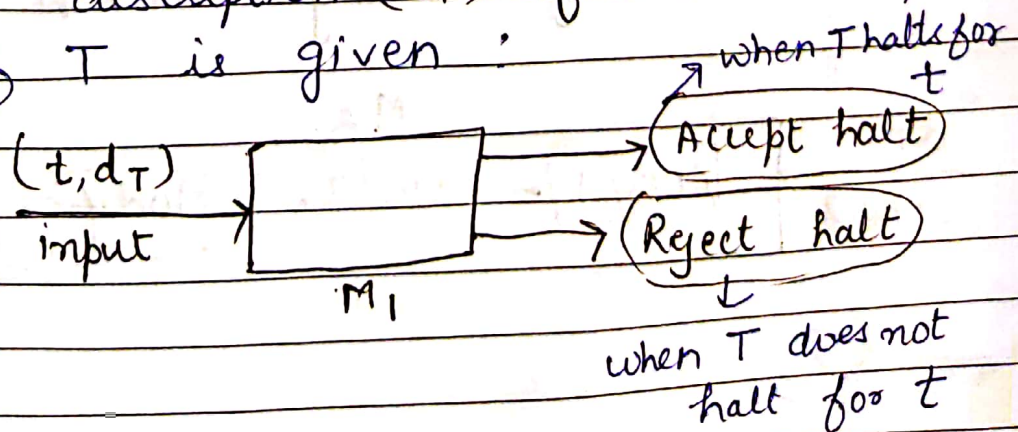 T is given :
when T halts for
t
(t, dT)
input
Accept halt
Reject halt
M1
when T does not
halt for t